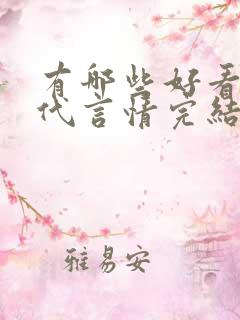 有哪些好看
代言情完结
雅易安